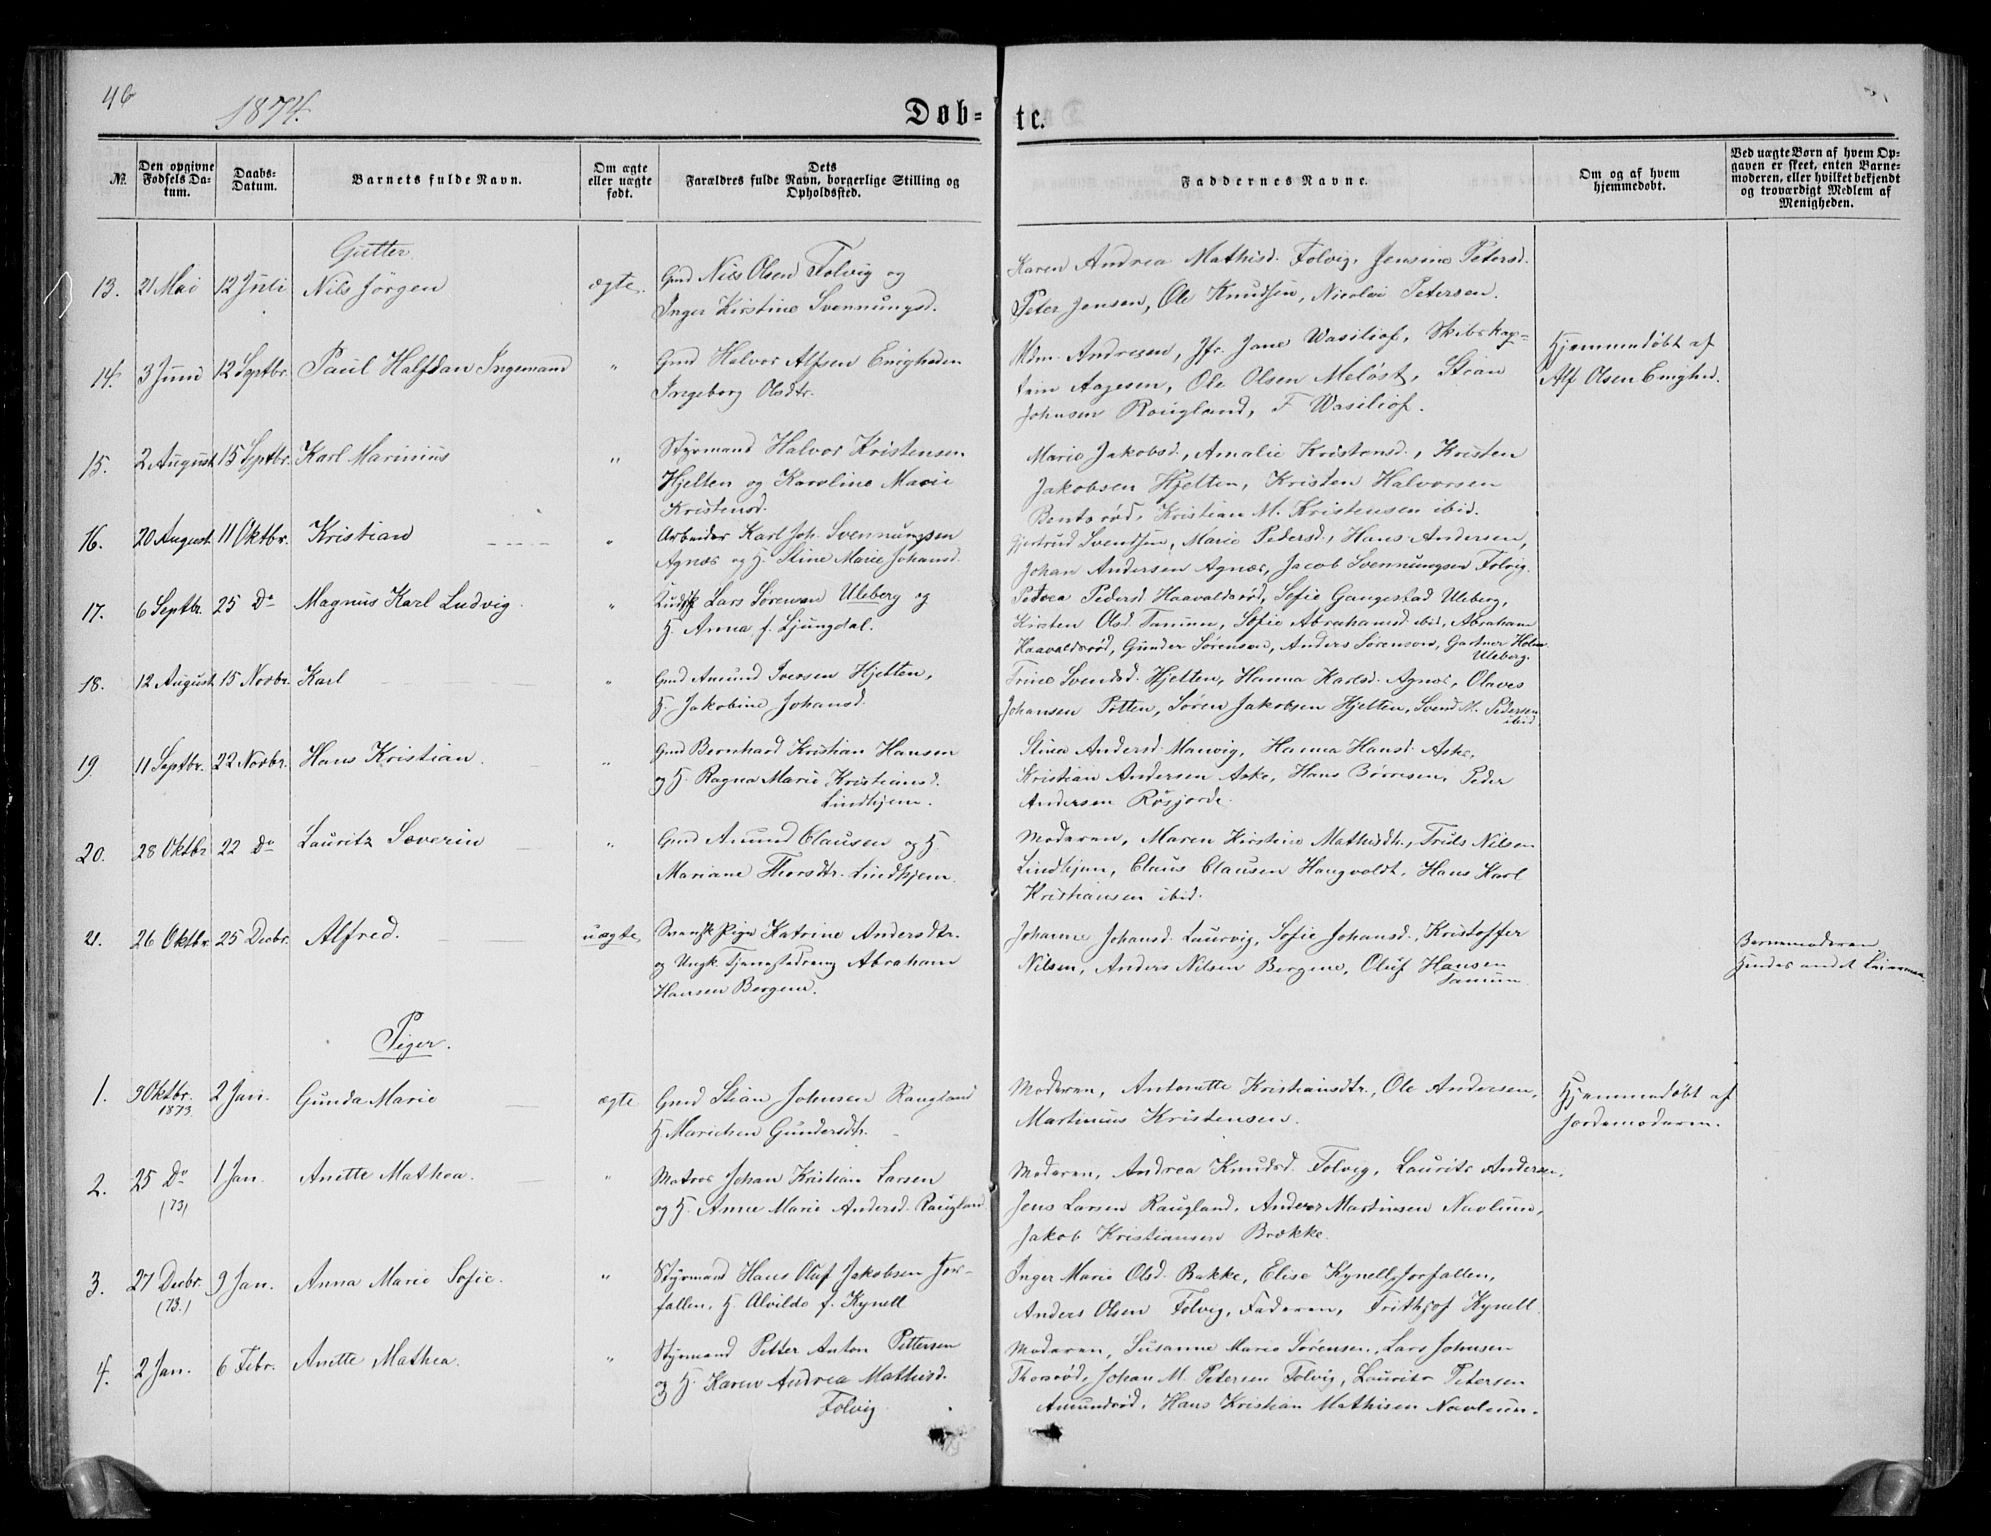 46
1874.
Døb-te.
No.
Den opgivne Fødsels Datum.
Daabs-Datum.
Barnets fulde Navn.
Om ægte eller uægte født.
Dets Forældres fulde Navn, borgerlige Stilling og Opholdssted.
Faddernes Navne.
Om og af hvem hjemmedøbt.
Ved uægte Børn af hvem Opgaven er skeet, enten Barnemoderen, eller hvilket bekjendt og troværdigt Medlem af Menigheden.
Gutter
13. 21 Mai 12 Juli Nils Jørgen ægte. Gmd Nils Olsen Folvig og
Inger Kirstine Svennungsd.
Karen Andrea Mathisd. Folvig, Jensine Petersd.
Peter Jensen, Ole Knudsen, Nicolai Petersen.
14. 3 Juni 12 Septbr. Paul Halfdan Ingemand " Gmd Halvor Alfsen Enigheden
Ingeborg Olsdtr.
Mdm. Andresen, Jfr. Jane Wasiliof, Skibskap-
tein Aagesen, Ole Olsen Meløst, Stian
Johnsen Raugland, F Wasiliof.
Hjemmedøbt af
Alf Olsen Enighed.
15. 2 August 15 Septbr. Karl Marinius " Styrmand Halvor Kristensen
Hjelten og Karoline Marie
Kristensd.
Marie Jakobsd., Amalie Kristensd., Kristen
Jakobsen Hjelten, Kristen Halvorsen
Bentsrød, Kristian M. Kristensen ibid.
16. 20 August 11 Oktbr. Kristian " Arbeider Karl Joh. Svennungsen
Agnæs og H. Stine Marie Johansd.
Gjertrud Svendsen, Marie Pedersd., Hans Andersen,
Johan Andersen Agnæs, Jacob Svennungsen Folvig.
17. 6 Septbr. 25 Do Magnus Karl Ludvig. " Lars Sørensen Uleberg og
H. Anna f. Ljungdal.
Petrea Pedersd. Haavaldsrød, Sofie Gangestad Uleberg,
Kirsten Olsd. Tanum, Sofie Abrahamsd. ibid, Abraham
Haavaldsrød, Gunder Sørensen, Anders Sørensen, Gartner Holm
Uleberg.
18. 12 August 15 Novbr. Karl " Gmd Amund Iversen Hjelten,
H. Jakobine Johansd.
Trine Svendsd. Hjelten, Hanna Karlsd. Agnæs, Olaves
Johansen Potten, Søren Jakobsen Hjelten, Svend M. Pedersen
ibid
19 11 Septbr. 22 Novbr. Hans Kristian. " Gmd Bernhard Kristian Hansen
og H. Ragna Marie Kristiansd.
Lindhjem.
Stina Andersd. Manvig, Hanna Hansd. Aske,
Kristian Andersen Aske, Hans Børresen, Peder
Andersen Røsjorde.
20. 28 Oktbr 22 Do Lauritz Severin " Gmd Amund Clausen og H.
Mariane Thorsdtr. Lindhjem.
Moderen, Maren Kirstine Mathisdtr., Truls Nilsen
Lindhjem, Claus Clausen Haugvoldt, Hans Karl
Kristiansen ibid.
21. 26 Oktbr. 25 Decbr. Alfred. uægte Svensk Pige Katrine Andersdtr.
og Ungk. Tjenestedreng Abraham
Hansen Bergene.
Johanne Johansd. Laurvig, Sofie Johansd., Kristoffer
Nilsen, Anders Nilsen Bergene, Oluf Hansen
Tanum.
Barnemoderen
Hendes andet Leiermaal
Piger.
1. 9 Oktbr. 1873 2 Jan. Gunda Marie ægte Gmd Stian Johnsen Raugland
H. Marichen Gundersdtr.
Moderen, Antonette Kristiansdtr., Ole Andersen,
Martinius Kristensen.
Hjemmedøbt af
Jordemoderen.
2. 25 Do (73) 1 Jan. Anette Mathea. " Matros Johan Kristian Larsen
og H. Anne Marie Andersd. Raugland
Moderen, Andrea Knudsd. Folvig, Laurits Andersen,
Jens Larsen Raugland, Anders Martinsen Navlum,
Jakob Kristiansen Brække.
3. 27 Decbr. (73.) 9 Jan. Anna Marie Sofie. " Styrmand Hans Oluf Jakobsen Jor-
fallen, H. Alvilde f. Kynell
Inger Marie Olsd. Bakke, Elise Kynell Jorfallen,
Anders Olsen Folvig, Faderen, Frithjof Kynell.
4. 2 Jan. 6 Febr. Anette Mathea. " Styrmand Petter Anton Pettersen
og H. Karen Andrea Mathisd.
Folvig
Moderen, Susanne Marie Sørensen, Lars Johnsen
Thorsrød, Johan M. Petersen Folvig, Laurits Petersen
Amundrød, Hans Kristian Mathisen Navlum.